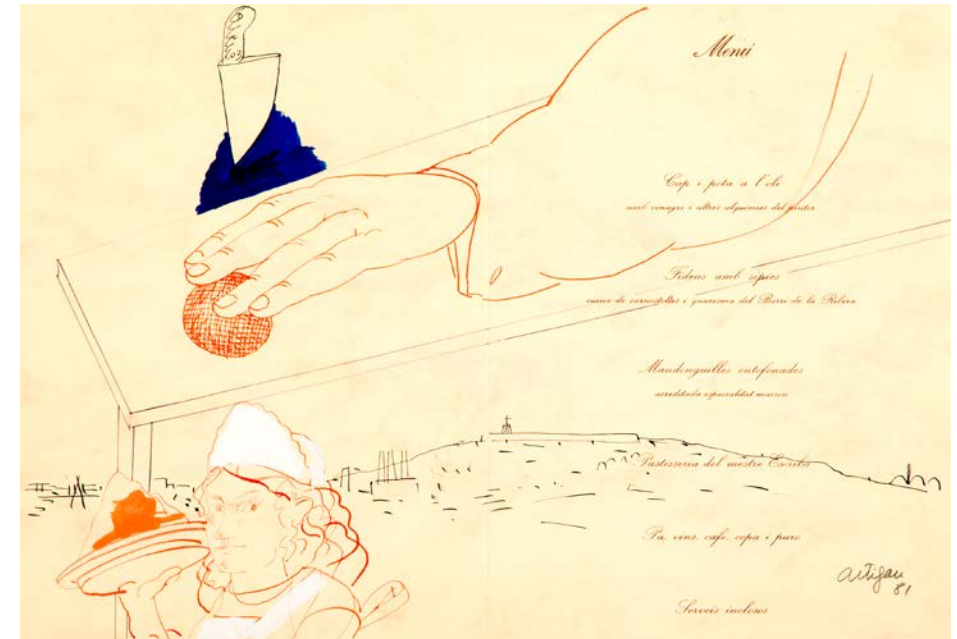 Menú
Cap i pota a l'oli
amb vinagre i altres alquimies del pintor
Fideus amb sípies
cuina de carnestoltes i quaresma del Barri de la Ribera
Mandonguilles entofonades
acreditada especialitat maison
Pastisseria del mestre Escribà
Pa, vins, cafè, copa i puro
Serveis inclosos
Artigau
81